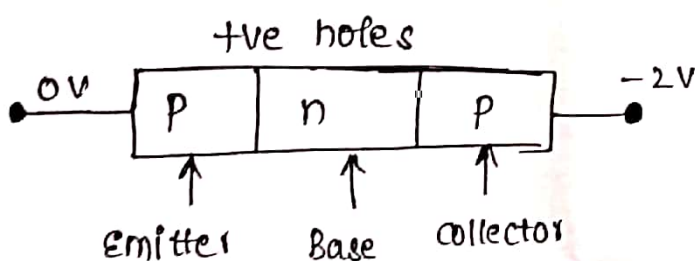 +ve holes
0V P n P -2V
Emitter Base Collector